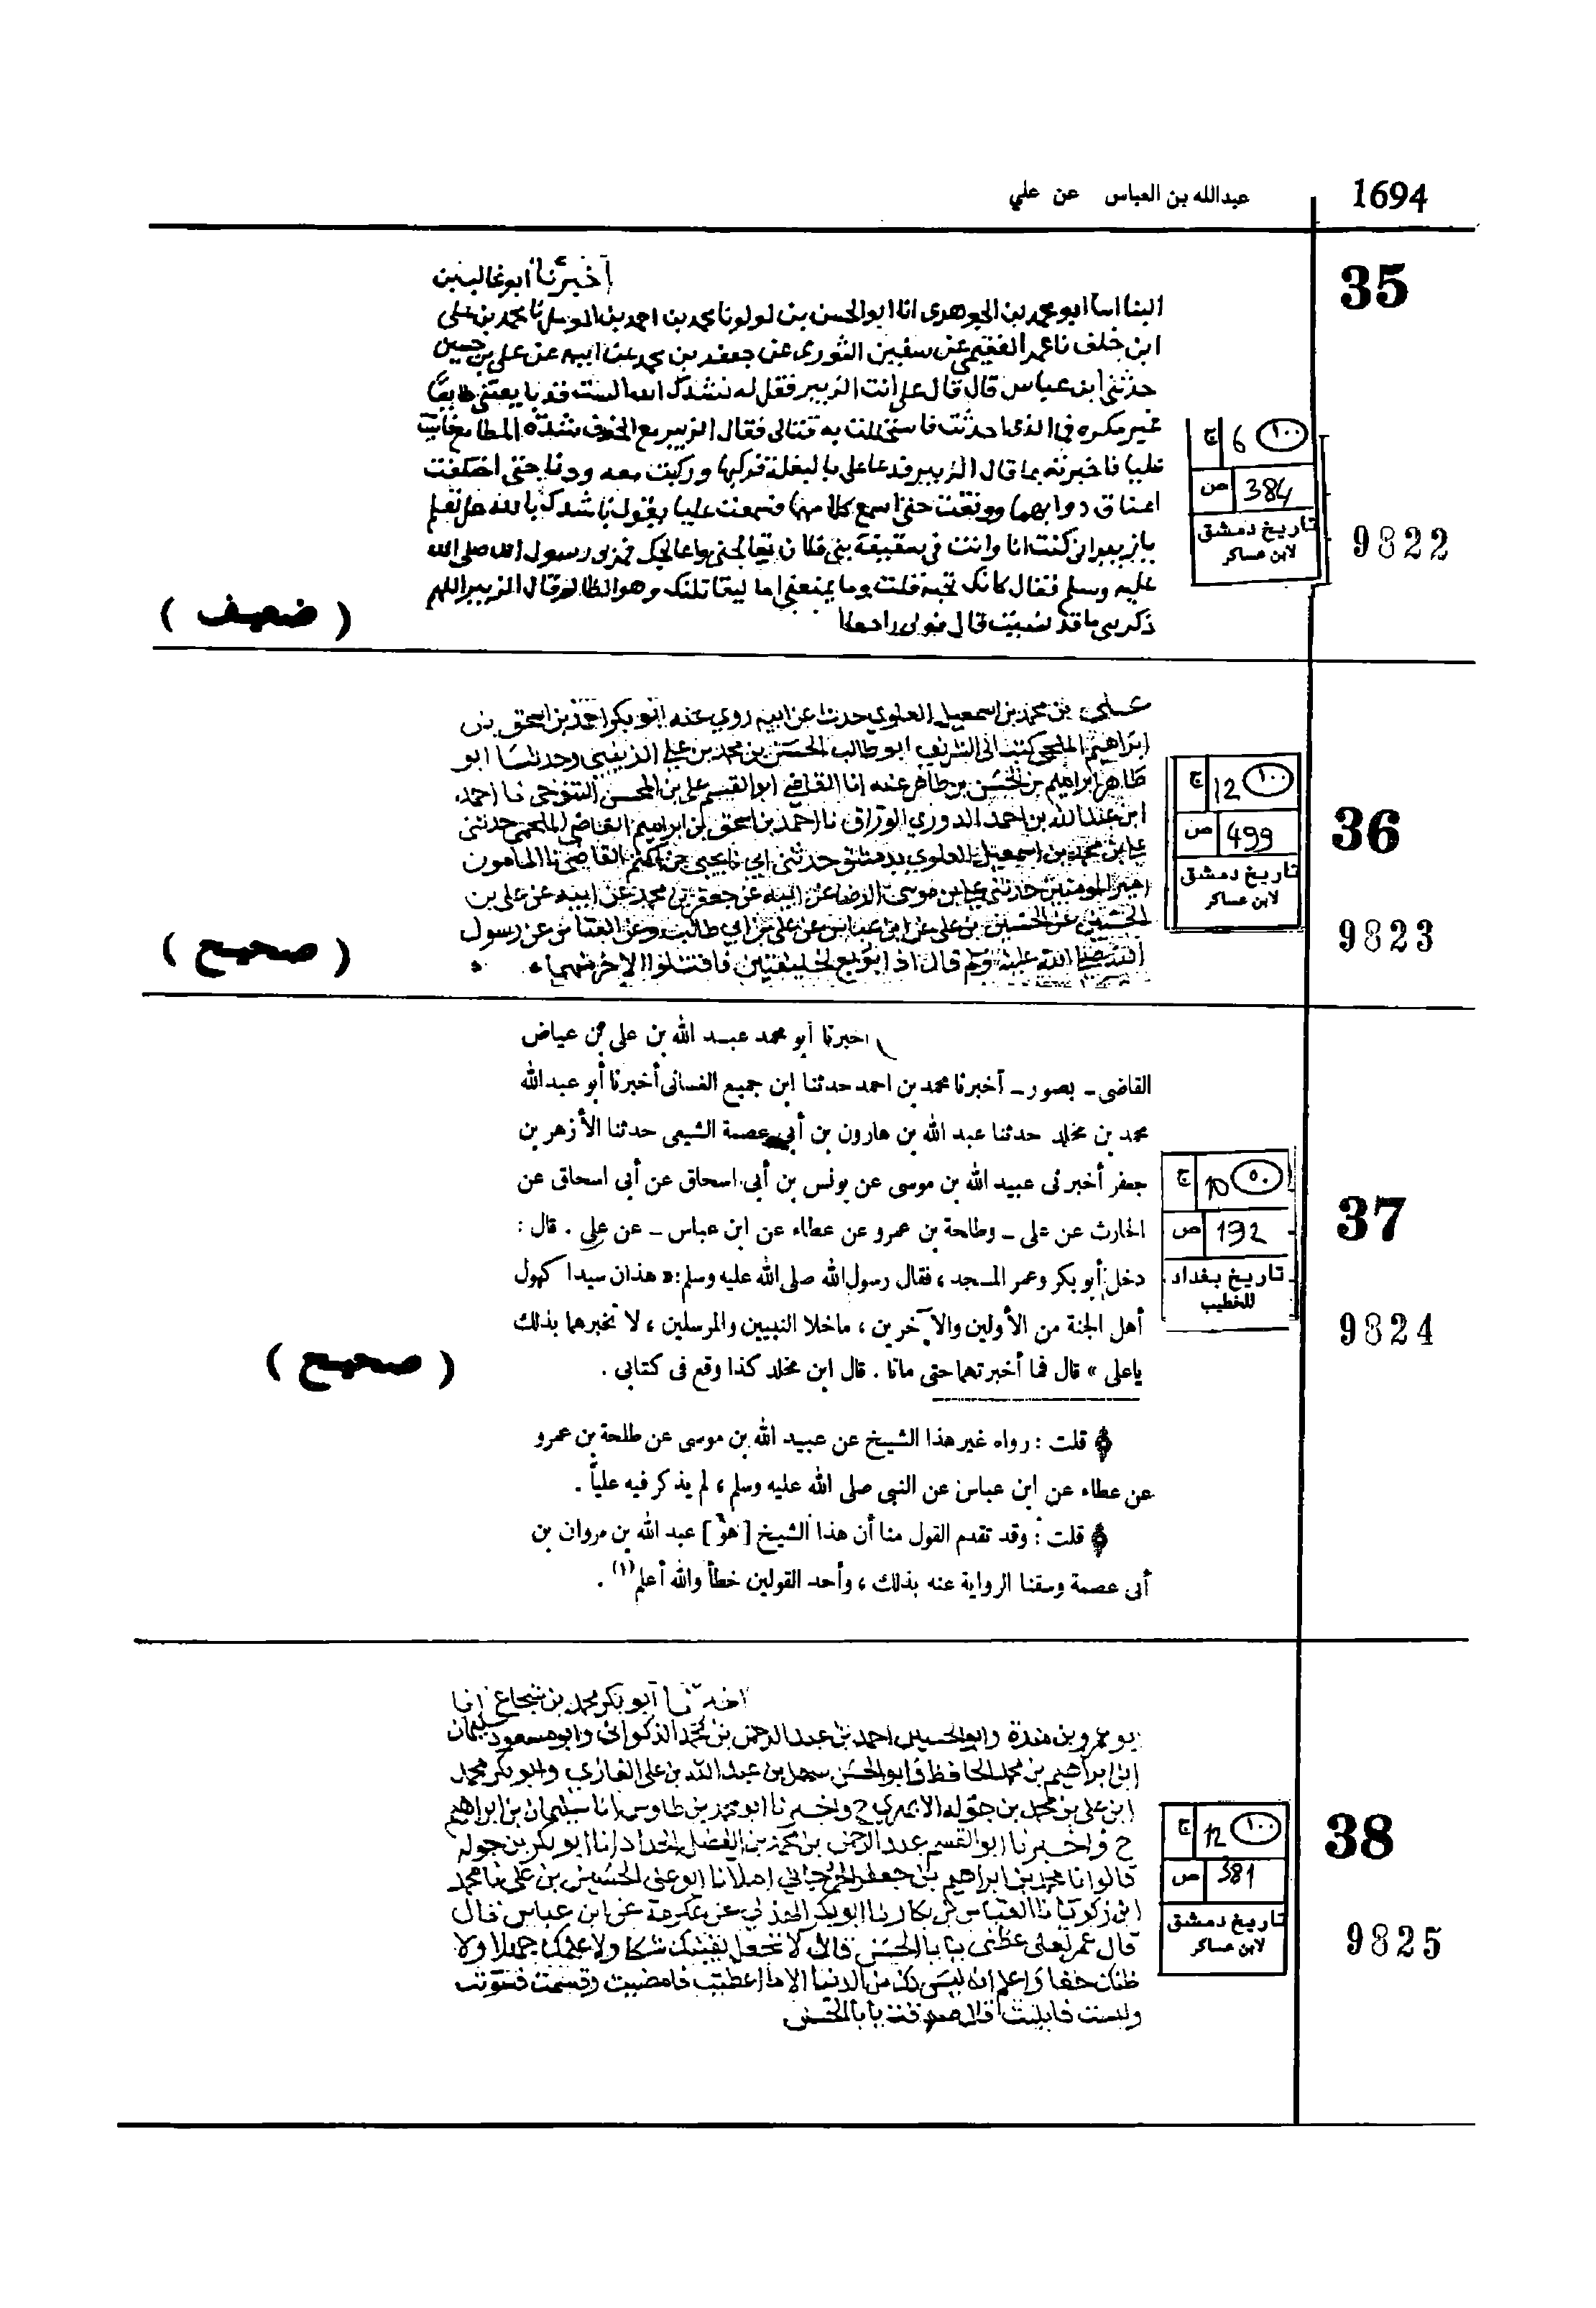 1694
عبدالله بن العباس عن علي
35
أخبرنا أبو غالب بن
البنا انا ابو محمد بن الجوهري انا ابو الحسن بن لولو نا محمد بن احمد بن نا محمد بن علي
ابن خلف نا عن سفين الثوري عن جعفر بن محمد عن ابيه عن علي بن حسين
حدثني ابن عباس قال قال علي انت الزبير فقل له ننشدك الله الست قد بايعتني طايعا
غير مكره في الذي احدثت فاستحللت به قتالي فقال الزبير مع الخوف شدة المطامع فاتيت
عليا فاخبرته بما قال الزبير فدعا علي بالبغلة فركبها وركبت معه ودنا حتى اختلفت
اعناق دوابهما ووقفت حتى اسمع كلامهما فسمعت عليا يقول ناشدتك بالله هل تعلم
يا زبير اني كنت انا وانت في سقيفة بني فلان تعالجني واعالجك فمر بي رسول الله صلى الله
عليه وسلم فقال كانك تحبه قلت وما يمنعني اما ليقاتلنك وهو الظالم قال الزبير اللهم
ذكرني ما قد نسيت قال فولى راجعا
( ضعيف )
١٠٠ 6 ج
384 ص
تاريخ دمشق
لابن عساكر
9822
علي بن محمد بن اسمعيل العلوي حدث عن ابيه روي عنه ابو بكر احمد بن اسحق بن
ابراهيم الملحمي كتب الى الشريف ابو طالب الحسن بن محمد بن علي الزينبي وحدثنا ابو
طاهر ابراهيم بن الحسن بن طاهر عنه انا القاضي ابو القسم علي بن المحسن التنوخي نا احمد
ابن عبد الله بن احمد الدوري الوراق نا احمد بن اسحق بن ابراهيم القاضي الملحمي حدثني
علي بن محمد بن اسمعيل العلوي بدمشق حدثني ابي نا يحيى بن اكثم القاضي نا المامون
امير المومنين حدثني علي بن موسى الرضا عن ابيه عن جعفر بن محمد عن ابيه عن علي بن
الحسين عن الحسين بن علي عن ابن عباس عن علي بن ابي طالب وعن العباس عن رسول
الله صلى الله عليه وسلم قال اذا بويع لخليفتين فاقتلوا الاخر منهما
( صحيح )
١٠٠ 12 ج
499 ص
تاريخ دمشق
لابن عساكر
36
9823
اخبرنا أبو محمد عبد الله بن على بن عياض
القاضى ــ بصور ــ أخبرنا محمد بن احمد حدثنا ابن جميع الغسانى أخبرنا أبو عبد الله
محمد بن مخلد حدثنا عبد الله بن هارون بن أبى عصمة الشيعى حدثنا الأزهر بن
جعفر أخبرنى عبيد الله بن موسى عن يونس بن أبى اسحاق عن أبى اسحاق عن
الحارث عن على ــ وطلحة بن عمرو عن عطاء عن ابن عباس ــ عن على . قال :
دخل أبو بكر وعمر المسجد ، فقال رسول الله صلى الله عليه وسلم : « هذان سيدا كهول
أهل الجنة من الأولين والآخرين ، ماخلا النبيين والمرسلين ، لا تخبرهما بذلك
ياعلى » قال فما أخبرتهما حتى ماتا . قال ابن مخلد كذا وقع فى كتابى .
( صحيح )
٥٠ 10 ج
192 ص
تاريخ بغداد
للخطيب
37
9824
قلت : رواه غير هذا الشيخ عن عبيد الله بن موسى عن طلحة بن عمرو
عن عطاء عن ابن عباس عن النبى صلى الله عليه وسلم ، لم يذكر فيه علياً .
قلت : وقد تقدم القول منا أن هذا الشيخ [ هو ] عبد الله بن مروان بن
أبى عصمة وسقنا الرواية عنه بذلك ، وأحد القولين خطأ والله أعلم (١) .
اخبرنا ابو بكر محمد بن شجاع انا
بو عمرو بن مندة وابو الحسين احمد بن عبد الرحمن بن محمد الذكواني وابو مسعود سليمان
ابن ابراهيم بن محمد الحافظ وابو الحسن سهل بن عبد الله بن علي الغازي وابو بكر محمد
ابن علي بن محمد بن جوله الابهري ح واخبرنا ابو محمد بن طاوس انا سليمان بن ابراهيم
ح واخبرنا ابو القسم عبد الرحمن بن محمد بن الفضل الحداد انا ابو بكر بن جوله
قالوا انا محمد بن ابراهيم بن جعفر الجرجاني املانا ابو علي الحسين بن علي نا محمد
ابن زكريا نا العباس بن بكار نا ابو بكر الهذلي عن عكرمة عن ابن عباس قال
قال عمر لعلي عظني يا ابا الحسن قال لا تجعل يقينك شكا ولا علمك جهلا ولا
ظنك حقا واعلم انه ليس لك من الدنيا الا ما اعطيت فامضيت وقسمت فسويت
ولبست فابليت قال صدقت يا ابا الحسن
١٠٠ 12 ج
381 ص
تاريخ دمشق
لابن عساكر
38
9825